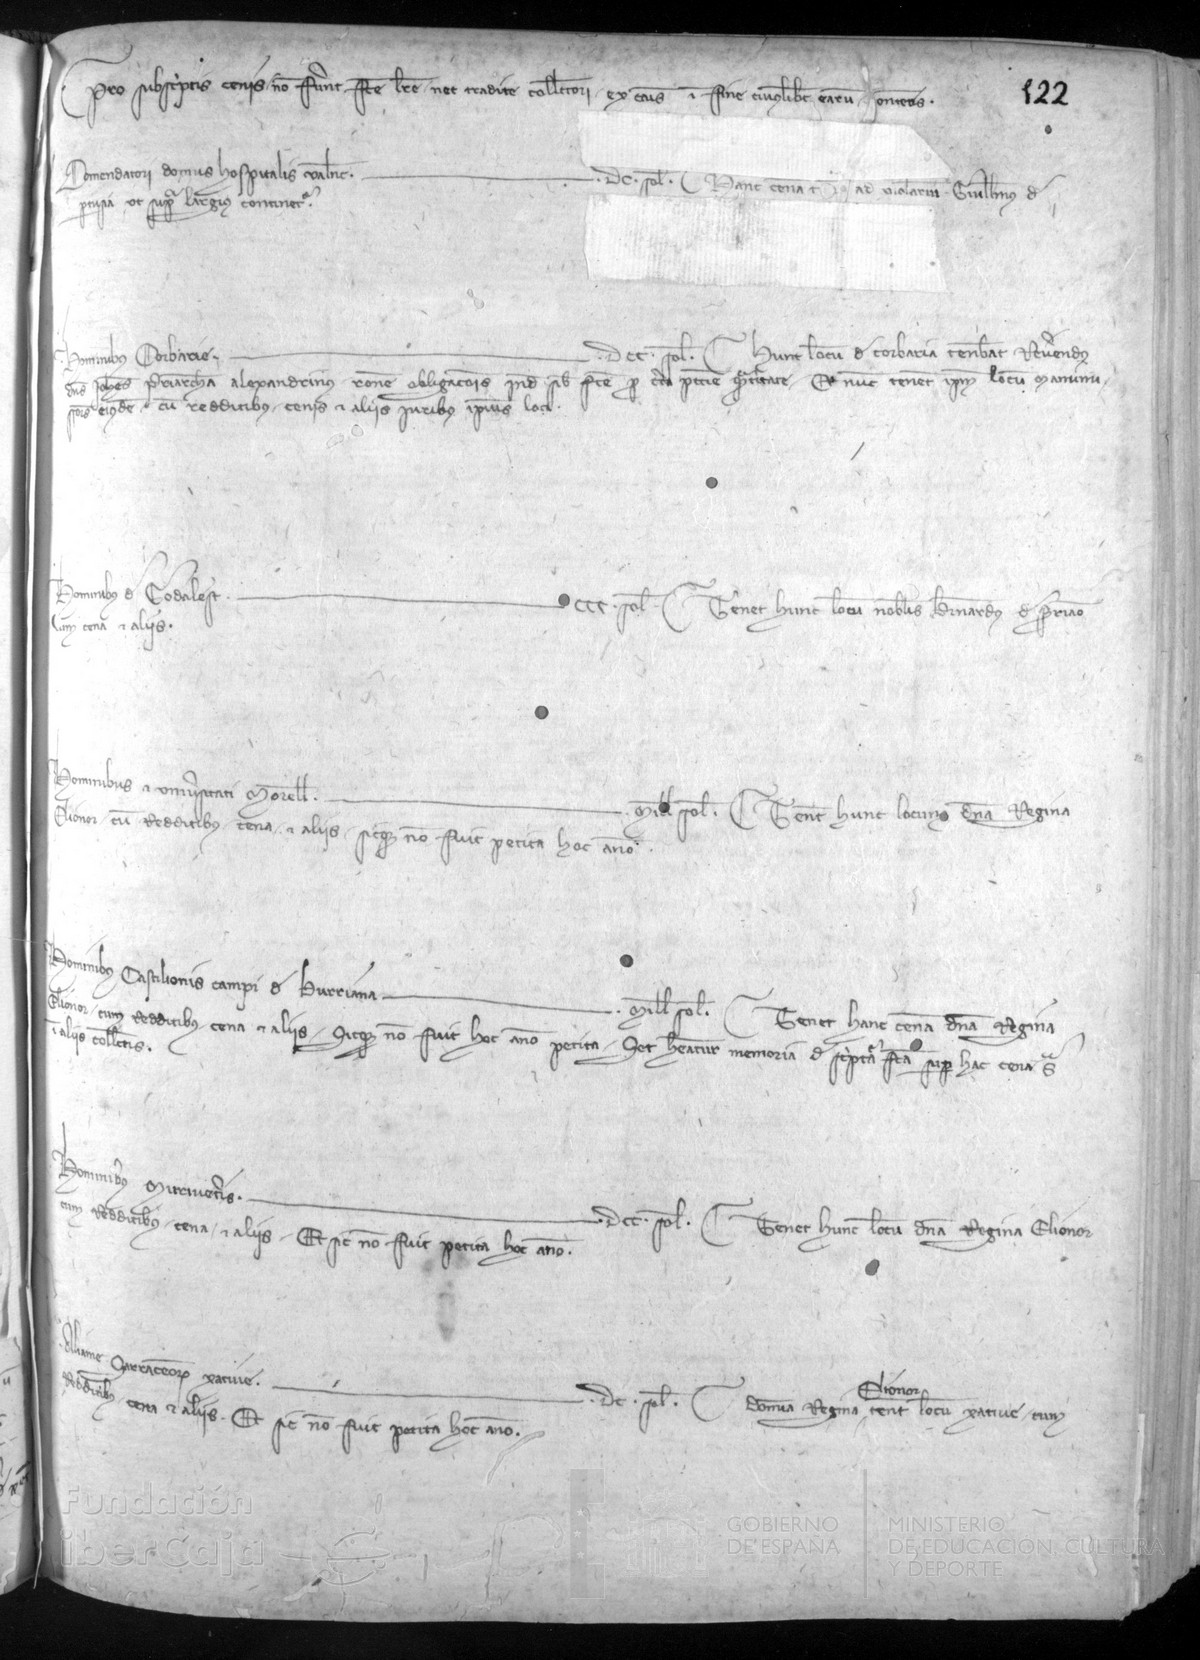 Pro subscriptis cenis no fuerunt fce lre nec tradite collectori ex causis i fine cuiuslibet earum contentis.
122
Comendatori domus hospitalis valenc. DC. sol. Hanc cena t ad violarium Guillmus d
ptusia ut supra largius continet.
Hominibus Corbarie. DCC. sol. Hunc locum de corbaria tenebat Reverendus
dns Johes Priarcha alexandrinus rone obligacois Et nunc tenet ipm locum manumis
sores eiusde cu redditibus cenis et aliis Juribus ipius loci.
Hominibus d Codalest. CCC. sol. Tenet hunc locu nobilis Bernardus d
cum cena et aliis.
Hominibus et universitati Morell. Mill sol. Tenet hunc locum dna Regina
Elionor cu Redditibus cena et aliis sicque no fuit petita hoc anno.
Hominibus Castilionis campi d Burriana Mill sol. Tenet hanc cena dna Regina
Elionor cum Redditibus cena et aliis Sicque no fuit hoc anno petita Set heatur memoria d scpta fca super hac cena
i aliis collectis.
Hominibus Muriveteris. DCC. sol. Tenet hunc locu dna Regina Elionor
cum Redditibus cena et aliis Et sic no fuit petita hoc anno.
Aliame Sarracenorum xative. DC. sol. domina Regina Elionor tenet locu xative cum
Redditibus cena et aliis. Et sic no fuit petita hoc anno.
Fundación
iberCaja
GOBIERNO
DE ESPAÑA
MINISTERIO
DE EDUCACIÓN, CULTURA
Y DEPORTE